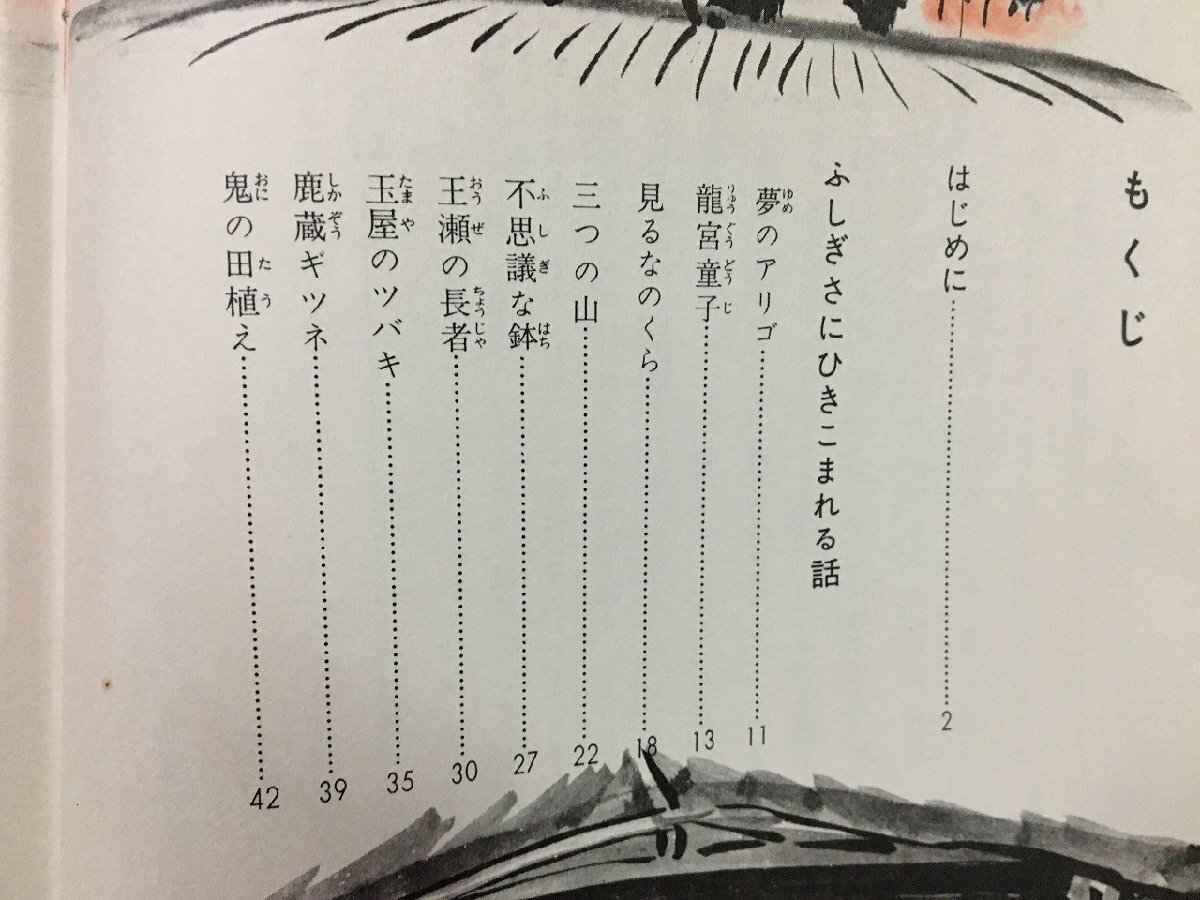 もくじ
はじめに…………2
ふしぎさにひきこまれる話
夢のアリゴ…………11
龍宮童子…………13
見るなのくら…………18
三つの山…………22
不思議な鉢…………27
王瀬の長者…………30
玉屋のツバキ…………35
鹿蔵ギツネ…………39
鬼の田植え…………42